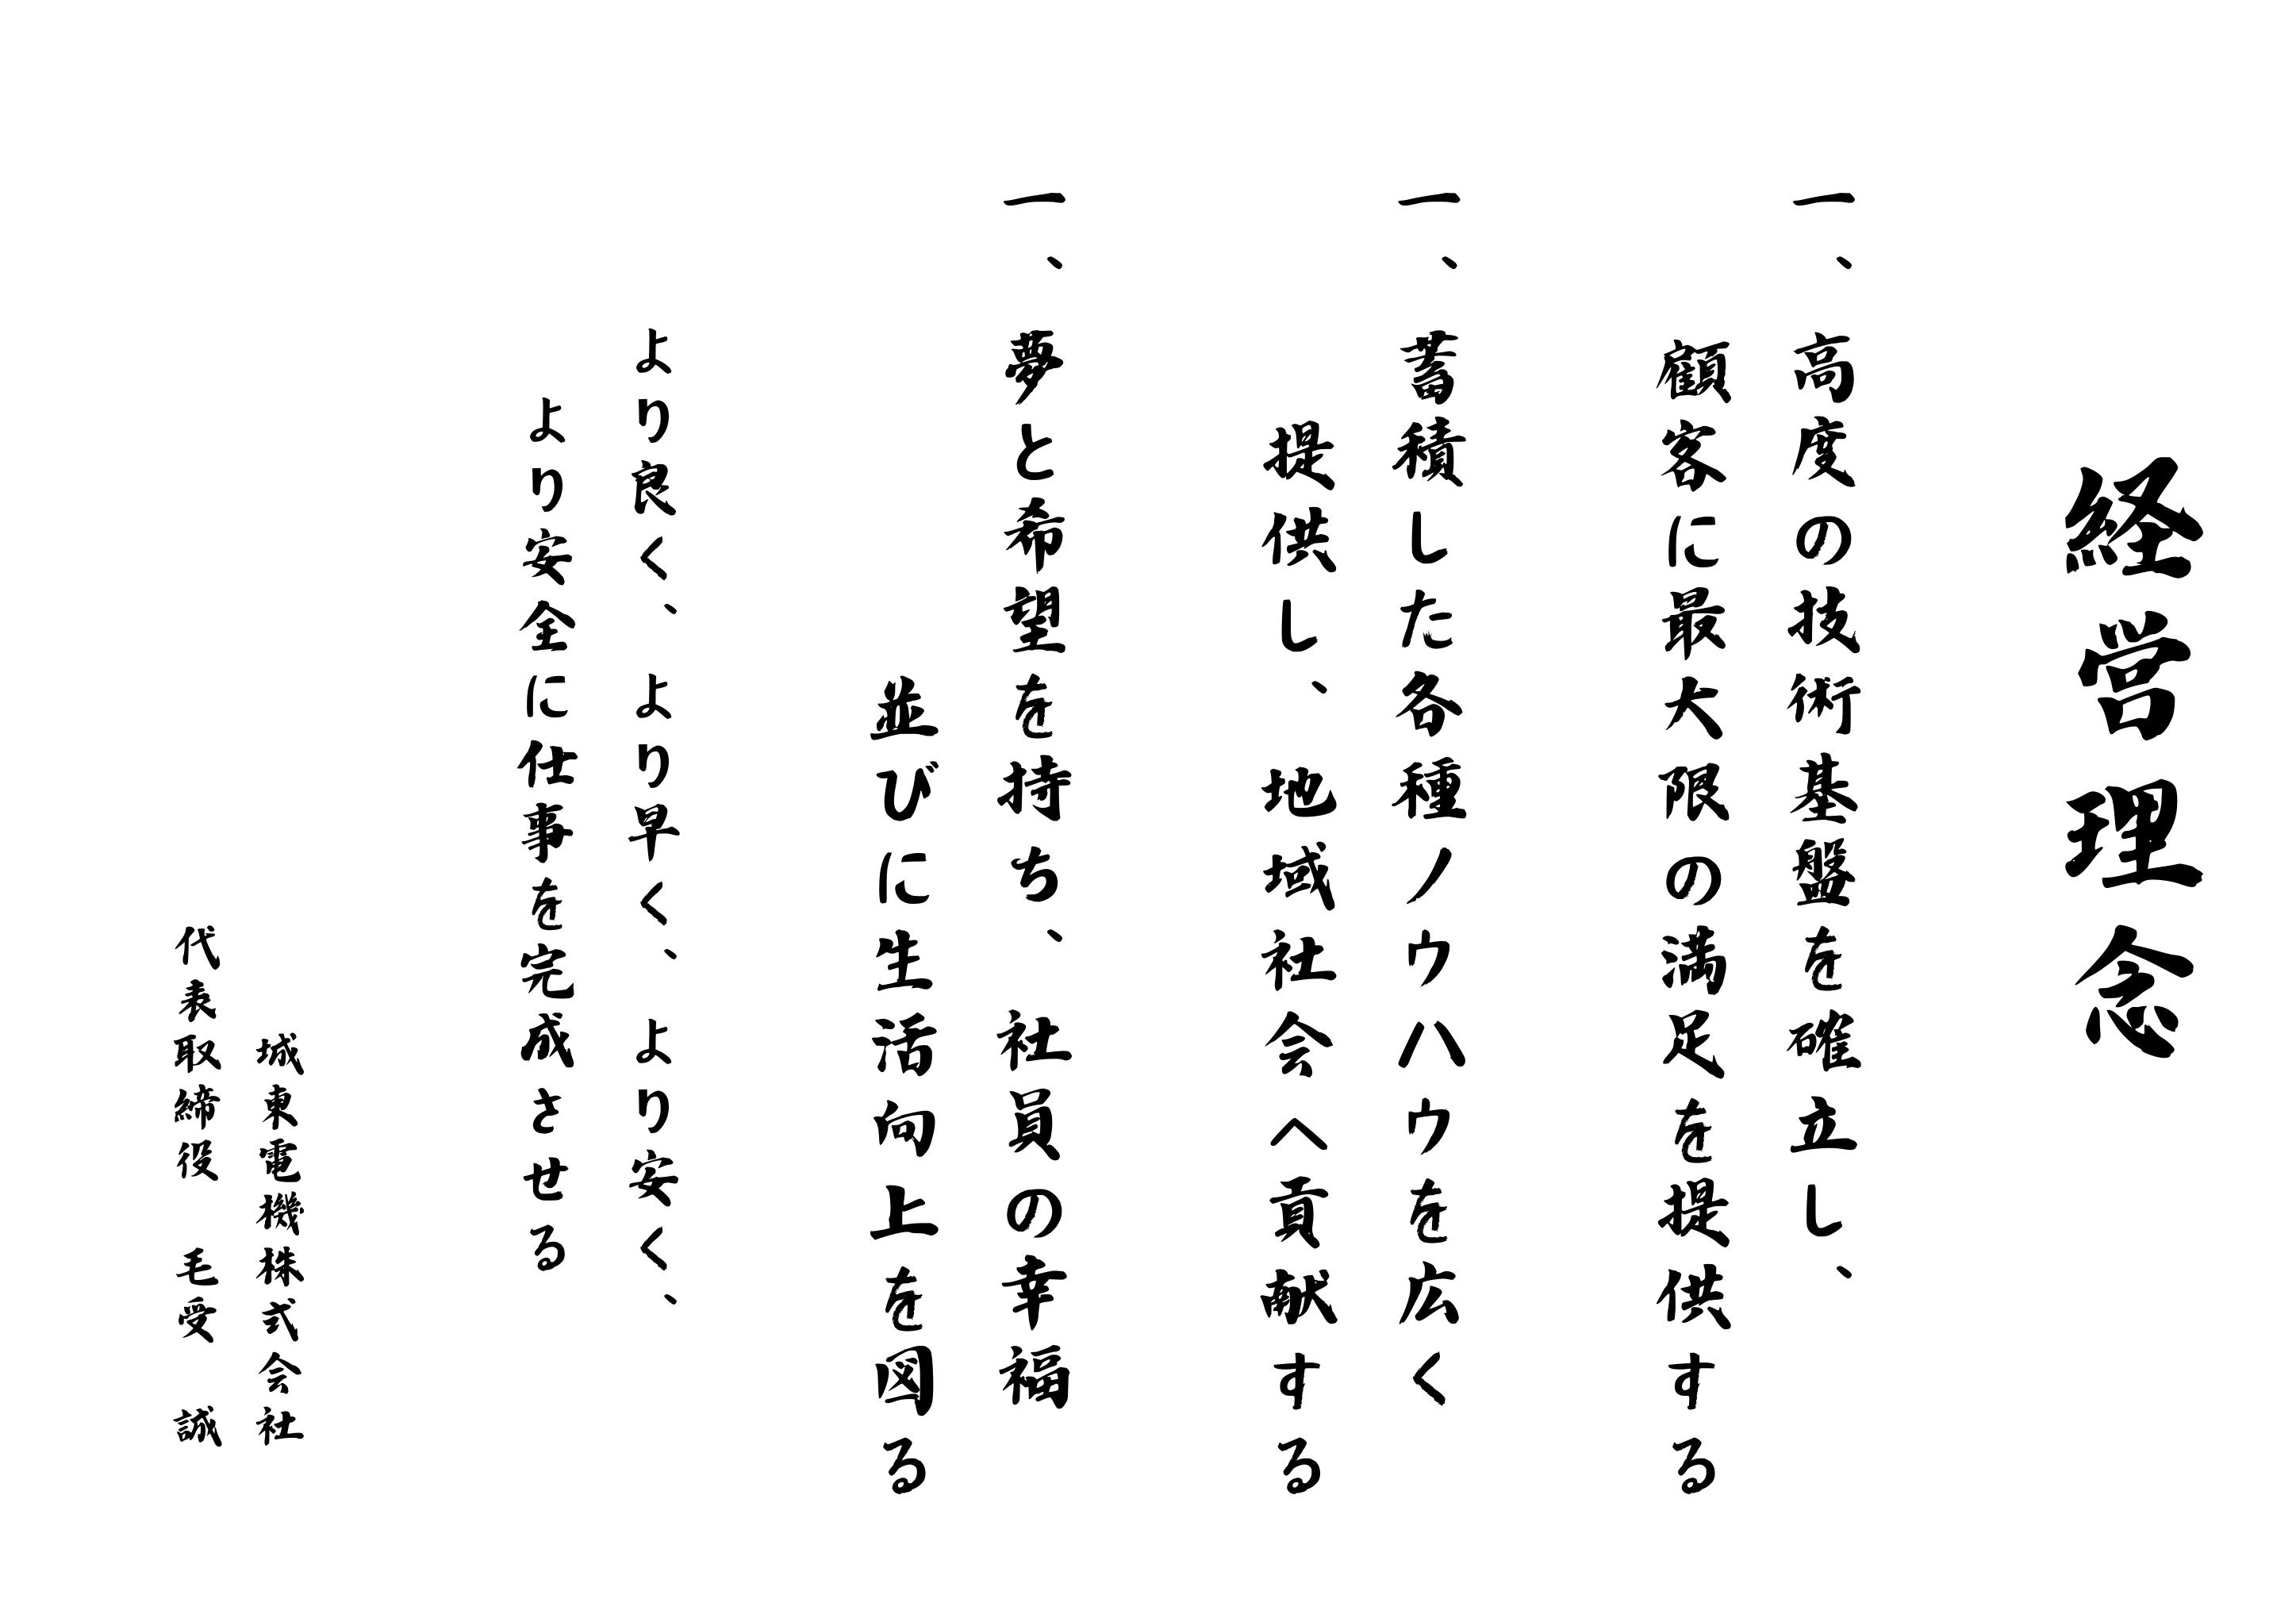 経営理念
一、高度の技術基盤を確立し、
顧客に最大限の満足を提供する
一、蓄積した各種ノウハウを広く
提供し、地域社会へ貢献する
一、夢と希望を持ち、社員の幸福
並びに生活向上を図る
より良く、より早く、より安く、
より安全に仕事を完成させる
城東電機株式会社
代表取締役　毛受　誠